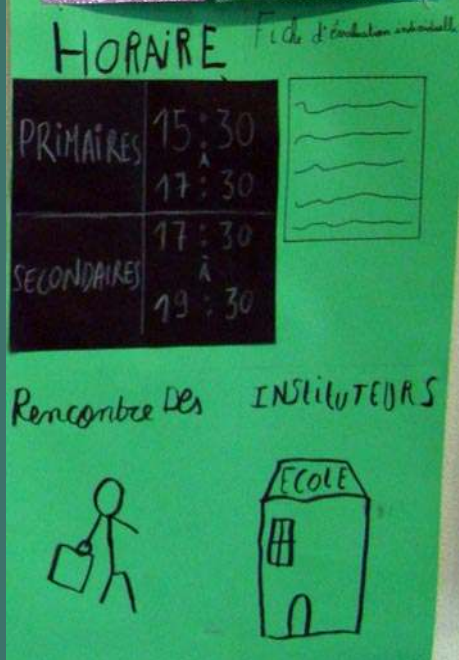 HORAIRE
Fiche d'évaluation individuelle
PRIMAIRES
15:30
À
17:30
SECONDAIRES
17:30
À
19:30
Rencontre Des INSTITUTEURS
ECOLE